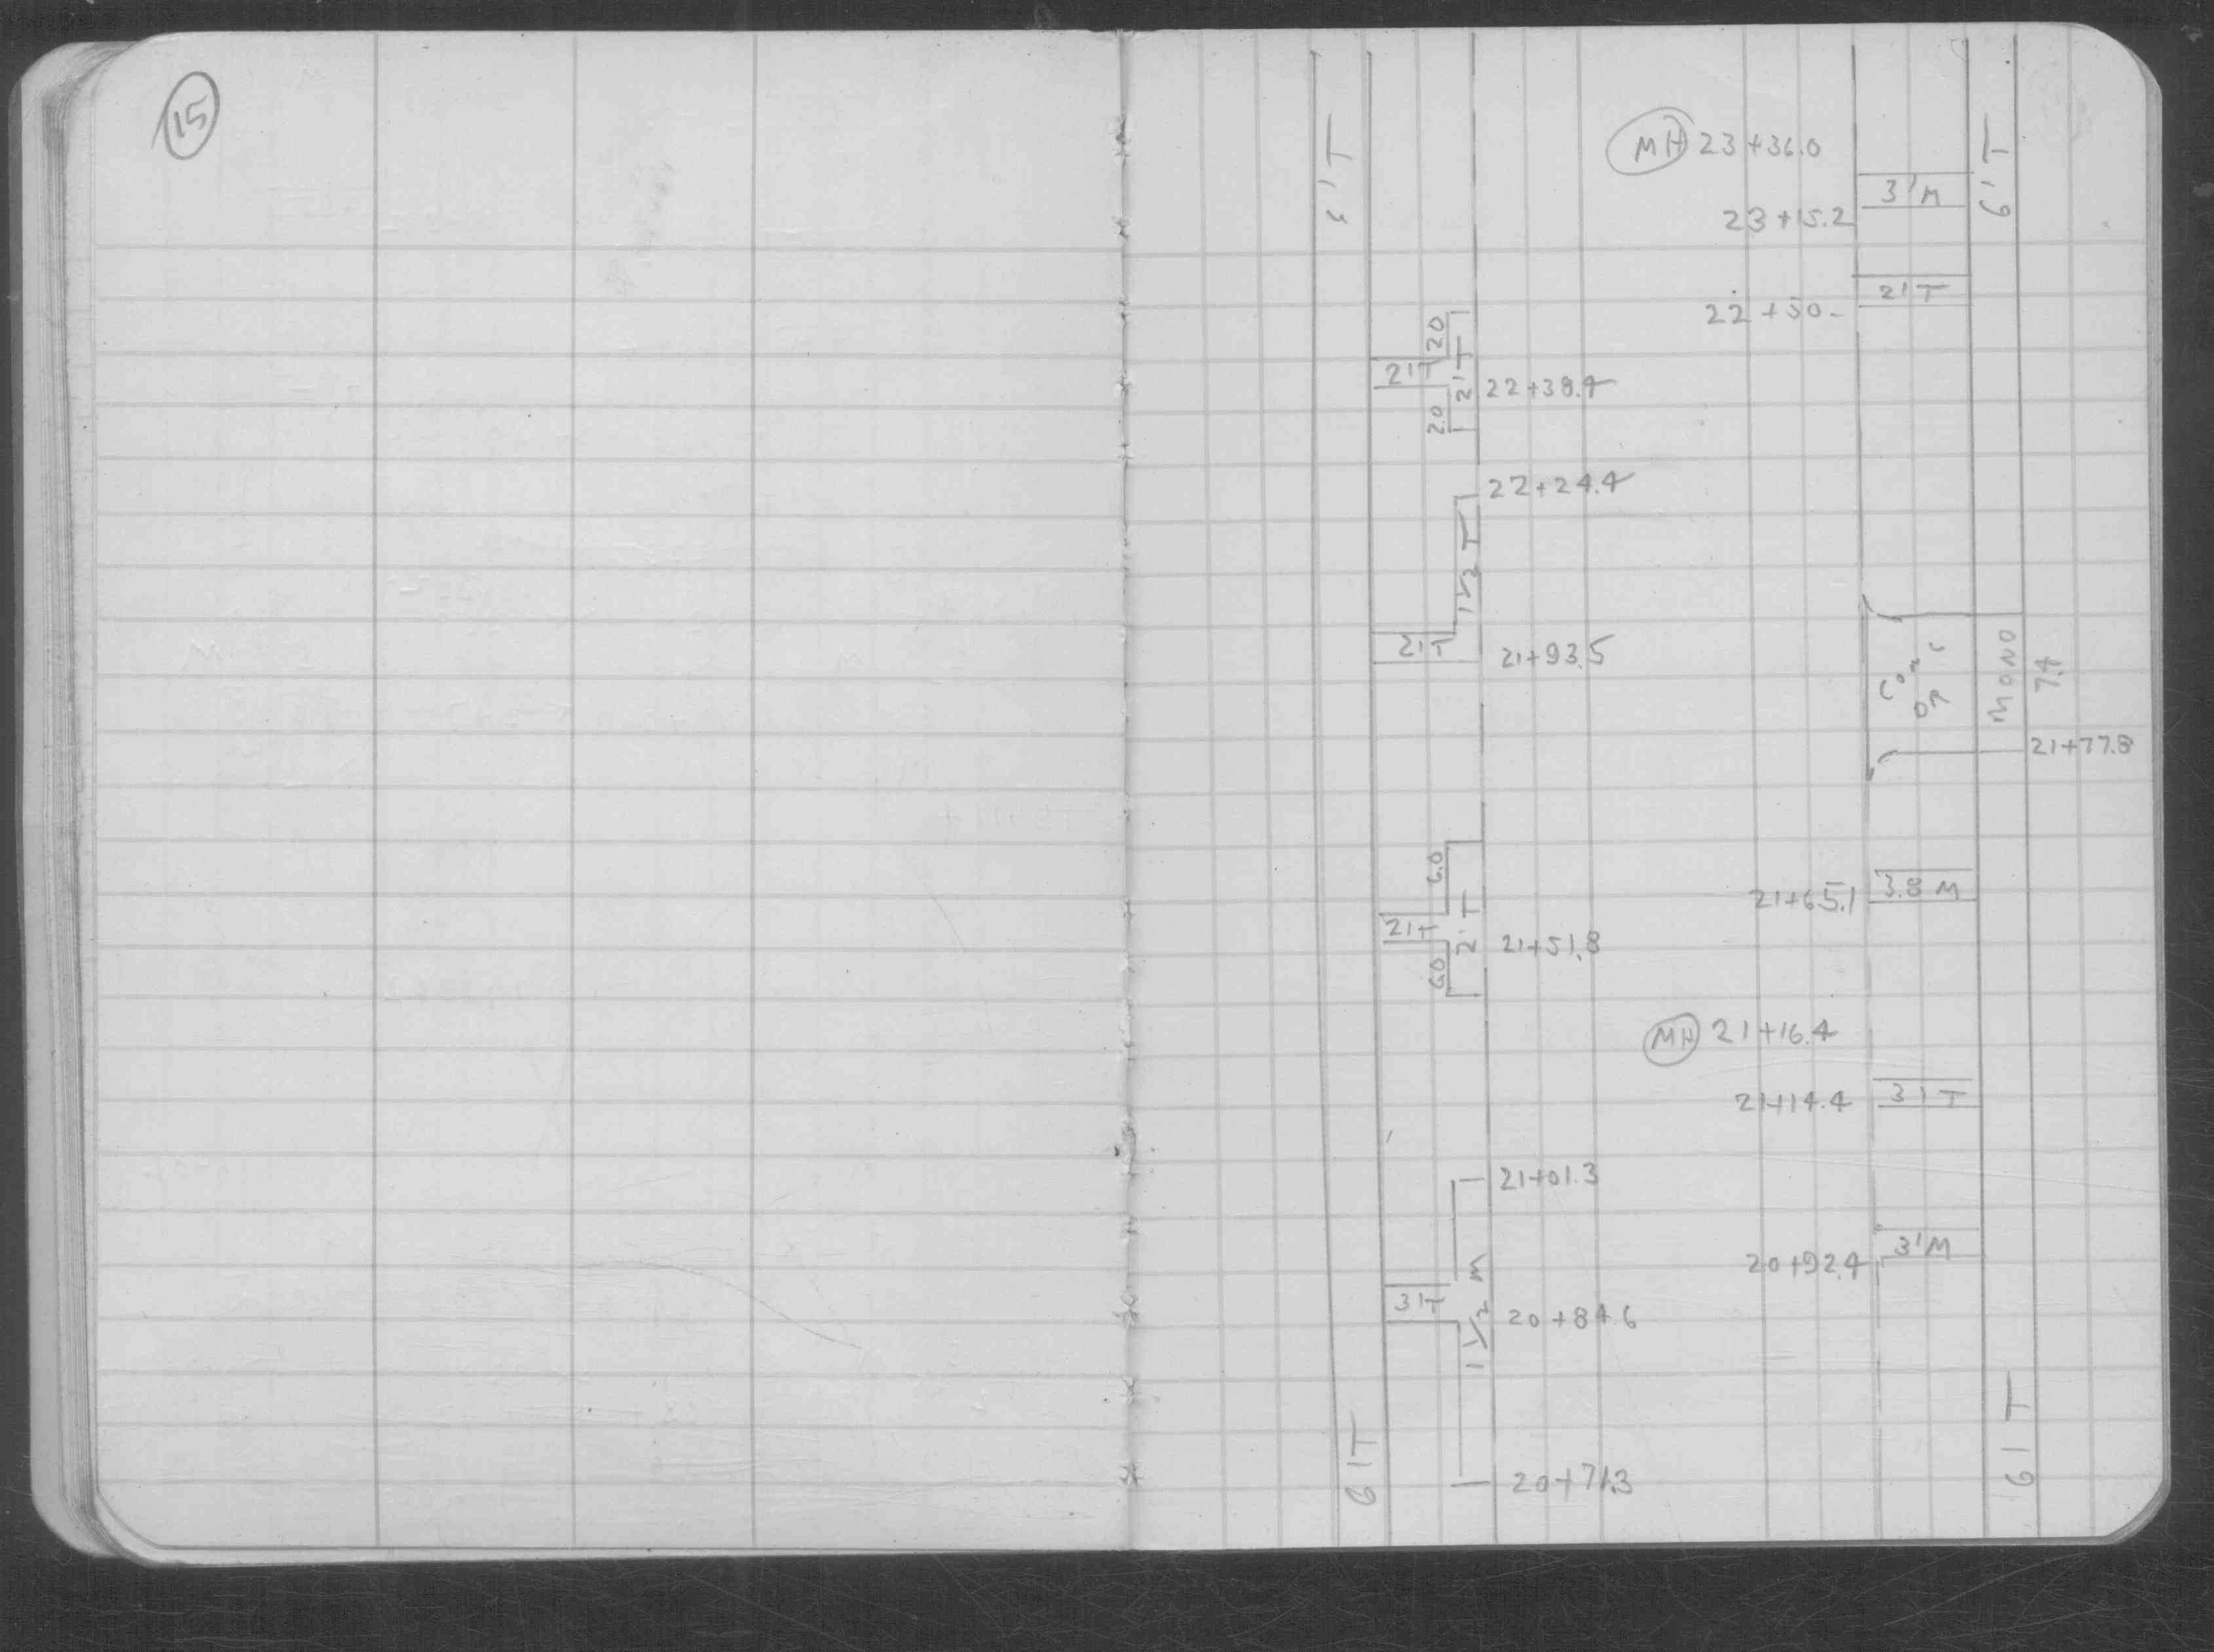 15
6'T
MH 23+36.0
6'T
3'M
23+15.2
2'T
22+50-
2.0
2'T
2'T
22+38.4
2.0
22+24.4
1 1/2 T
2'T
21+93.5
CONC
DR
MONO
7.4
21+77.8
6.0
3.8 M
21+65.1
2'T
2'T
21+51.8
6.0
MH 21+16.4
3'T
21+14.4
21+01.3
3'M
20+92.4
3'T
1 1/2 M
20+84.6
6'T
6'T
20+71.3